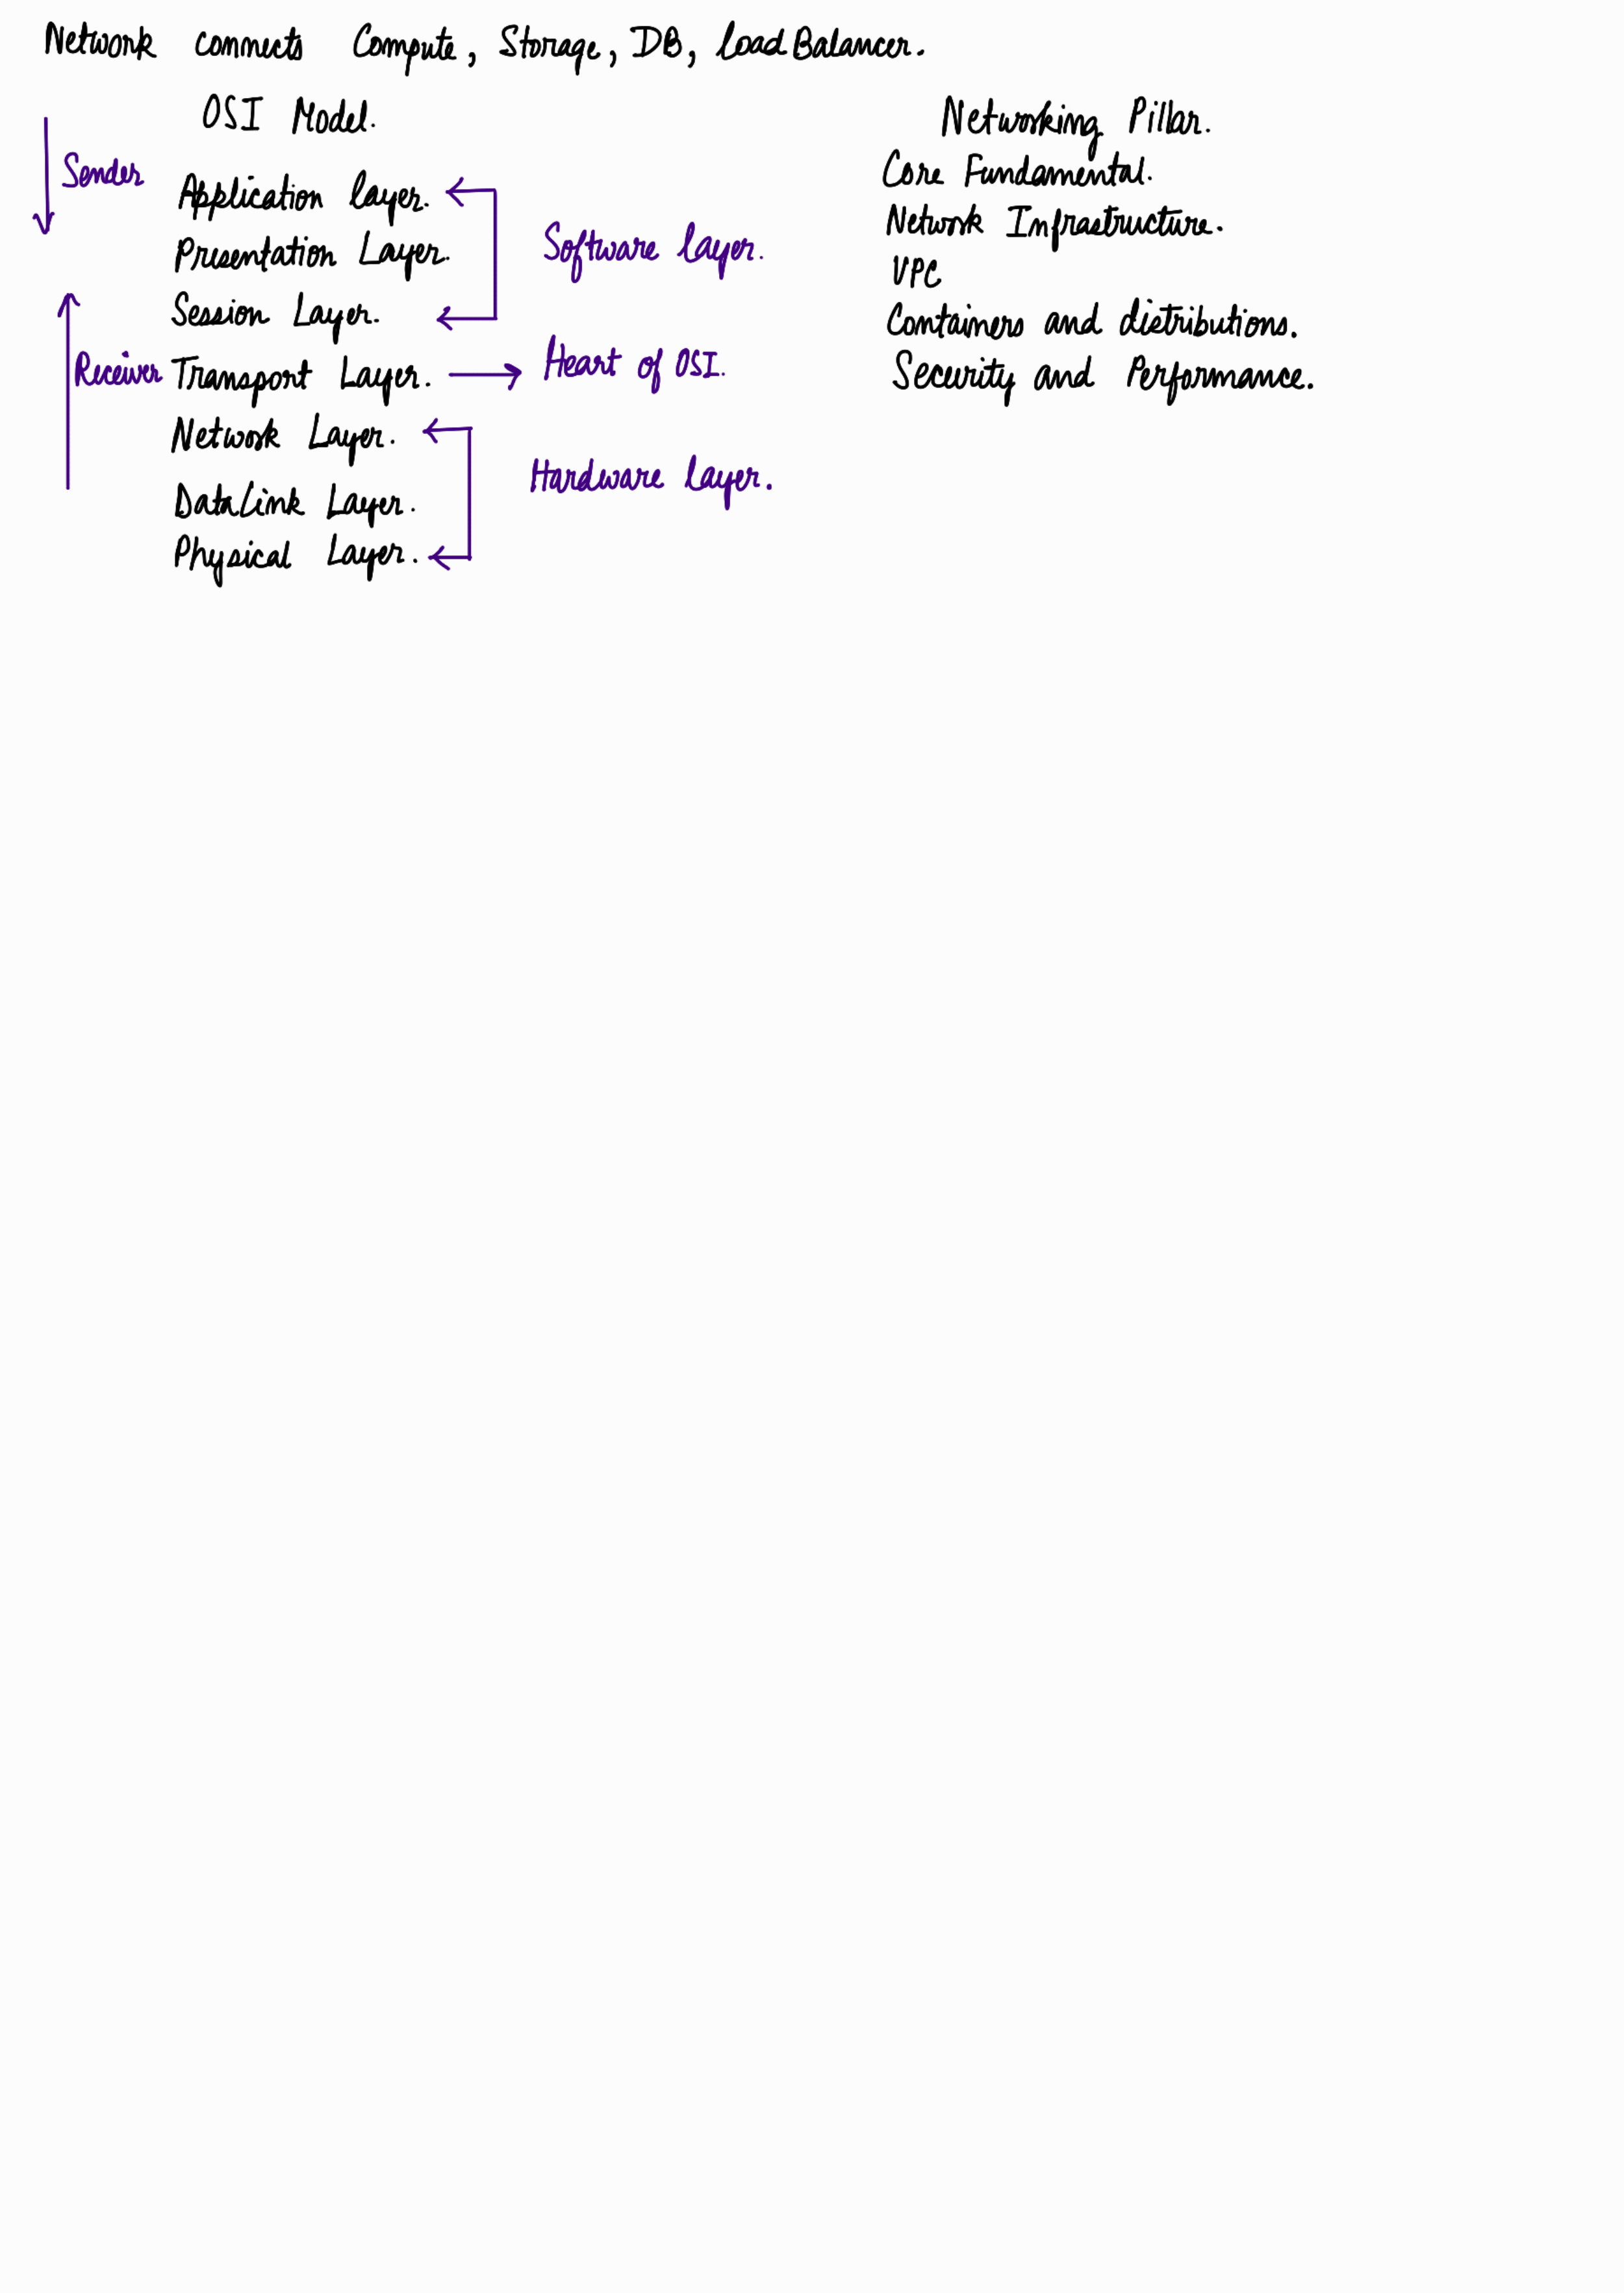 Network connects Compute, Storage, DB, Load Balancer.
OSI Model.
Sender
Application Layer.
Presentation Layer.
Session Layer.
Software Layer.
Receiver
Transport Layer.
Heart of OSI.
Network Layer.
Data Link Layer.
Physical Layer.
Hardware Layer.
Networking Pillar.
Core Fundamental.
Network Infrastructure.
VPC
Containers and distributions.
Security and Performance.